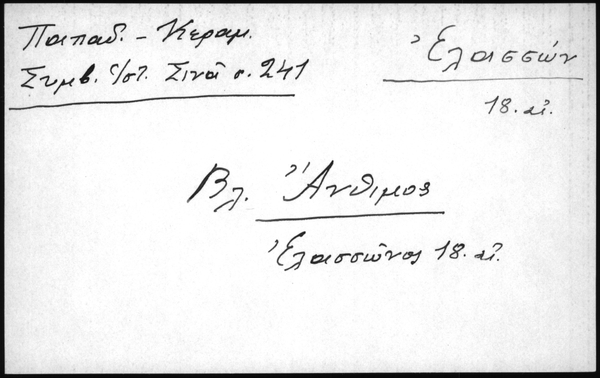 Παπαδ. - Κεραμ.
Συμβ. ἱστ. Σινᾶ σ. 241
Ἐλασσών
18. αἰ.
Βλ. Ἄνθιμος
Ἐλασσῶνος 18. αἰ.